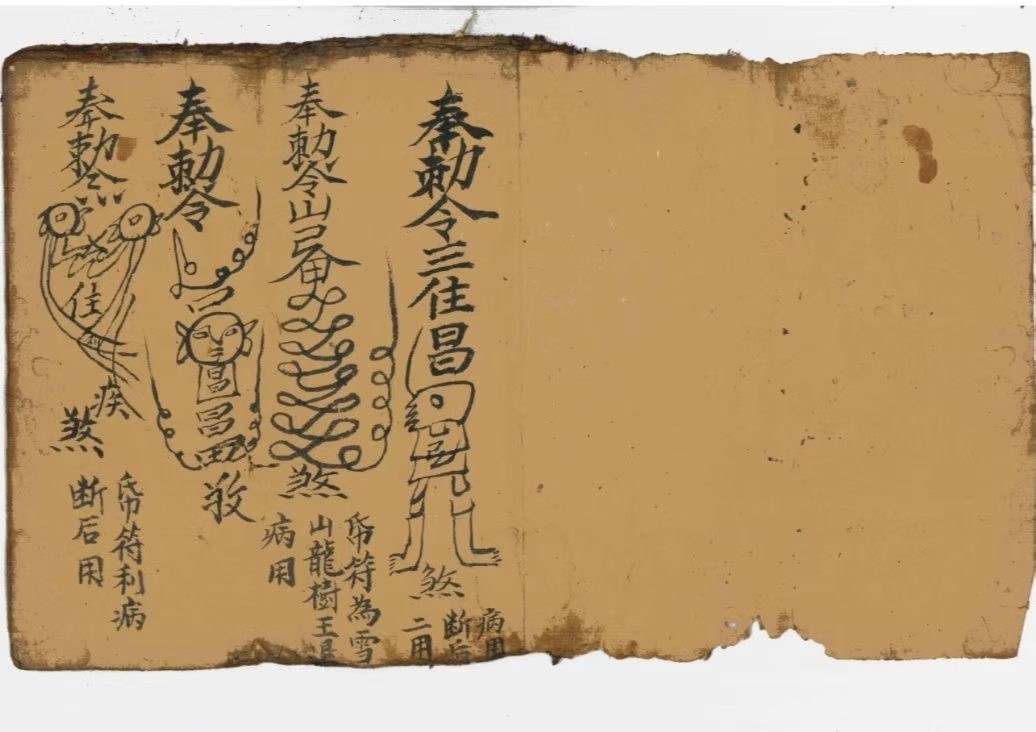 奉勅令三住昌
煞
病用
断后
二用
奉勅令山
煞
帋符為雪
山龍樹王退
病用
奉勅令
昌
昌
奉勅令
住
煞
帋符利病
断后用